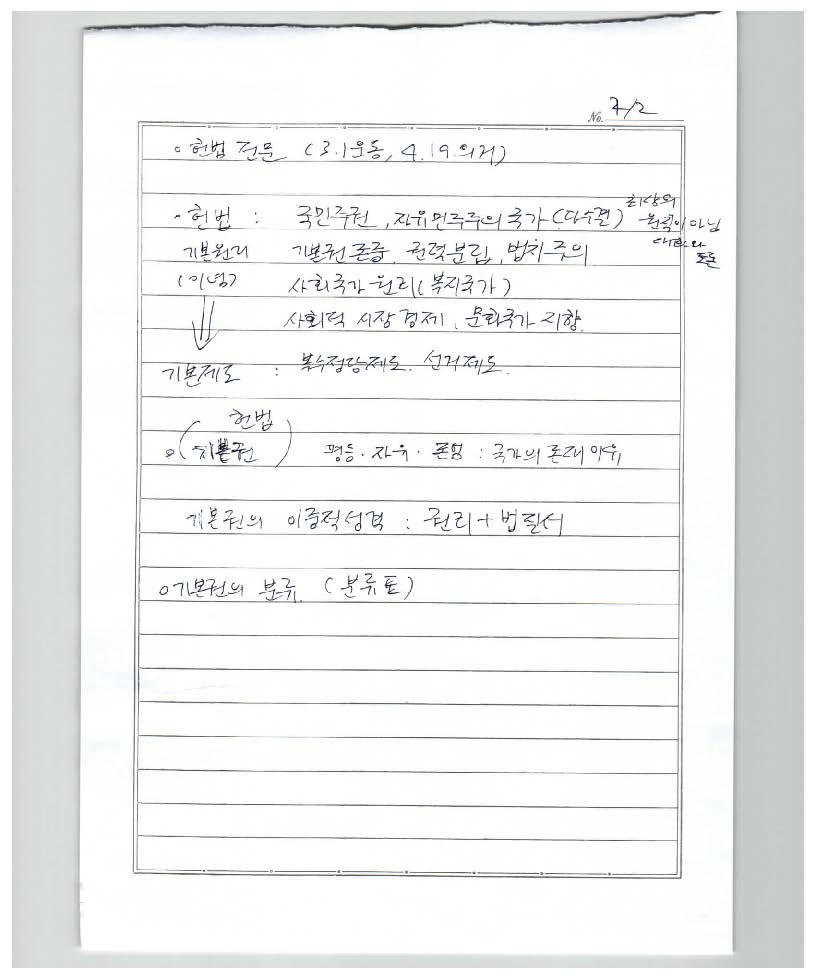 No. 7/2
○ 헌법 전문 (3.1운동, 4.19.의거)
- 헌법 : 국민주권, 자유민주주의 국가 (다수결) 최상의 원칙이 아님
대화와 토론
기본원리 기본권 존중, 권력분립, 법치주의
(이념) 사회국가 원리 (복지국가)
사회적 시장경제, 문화국가 지향.
기본제도 : 복수정당제도. 선거제도.
헌법
○ ( 기본권 ) 평등 · 자유 · 존엄 : 국가의 존재 이유
기본권의 이중적성격 : 권리 + 법질서
○ 기본권의 분류. (분류표)